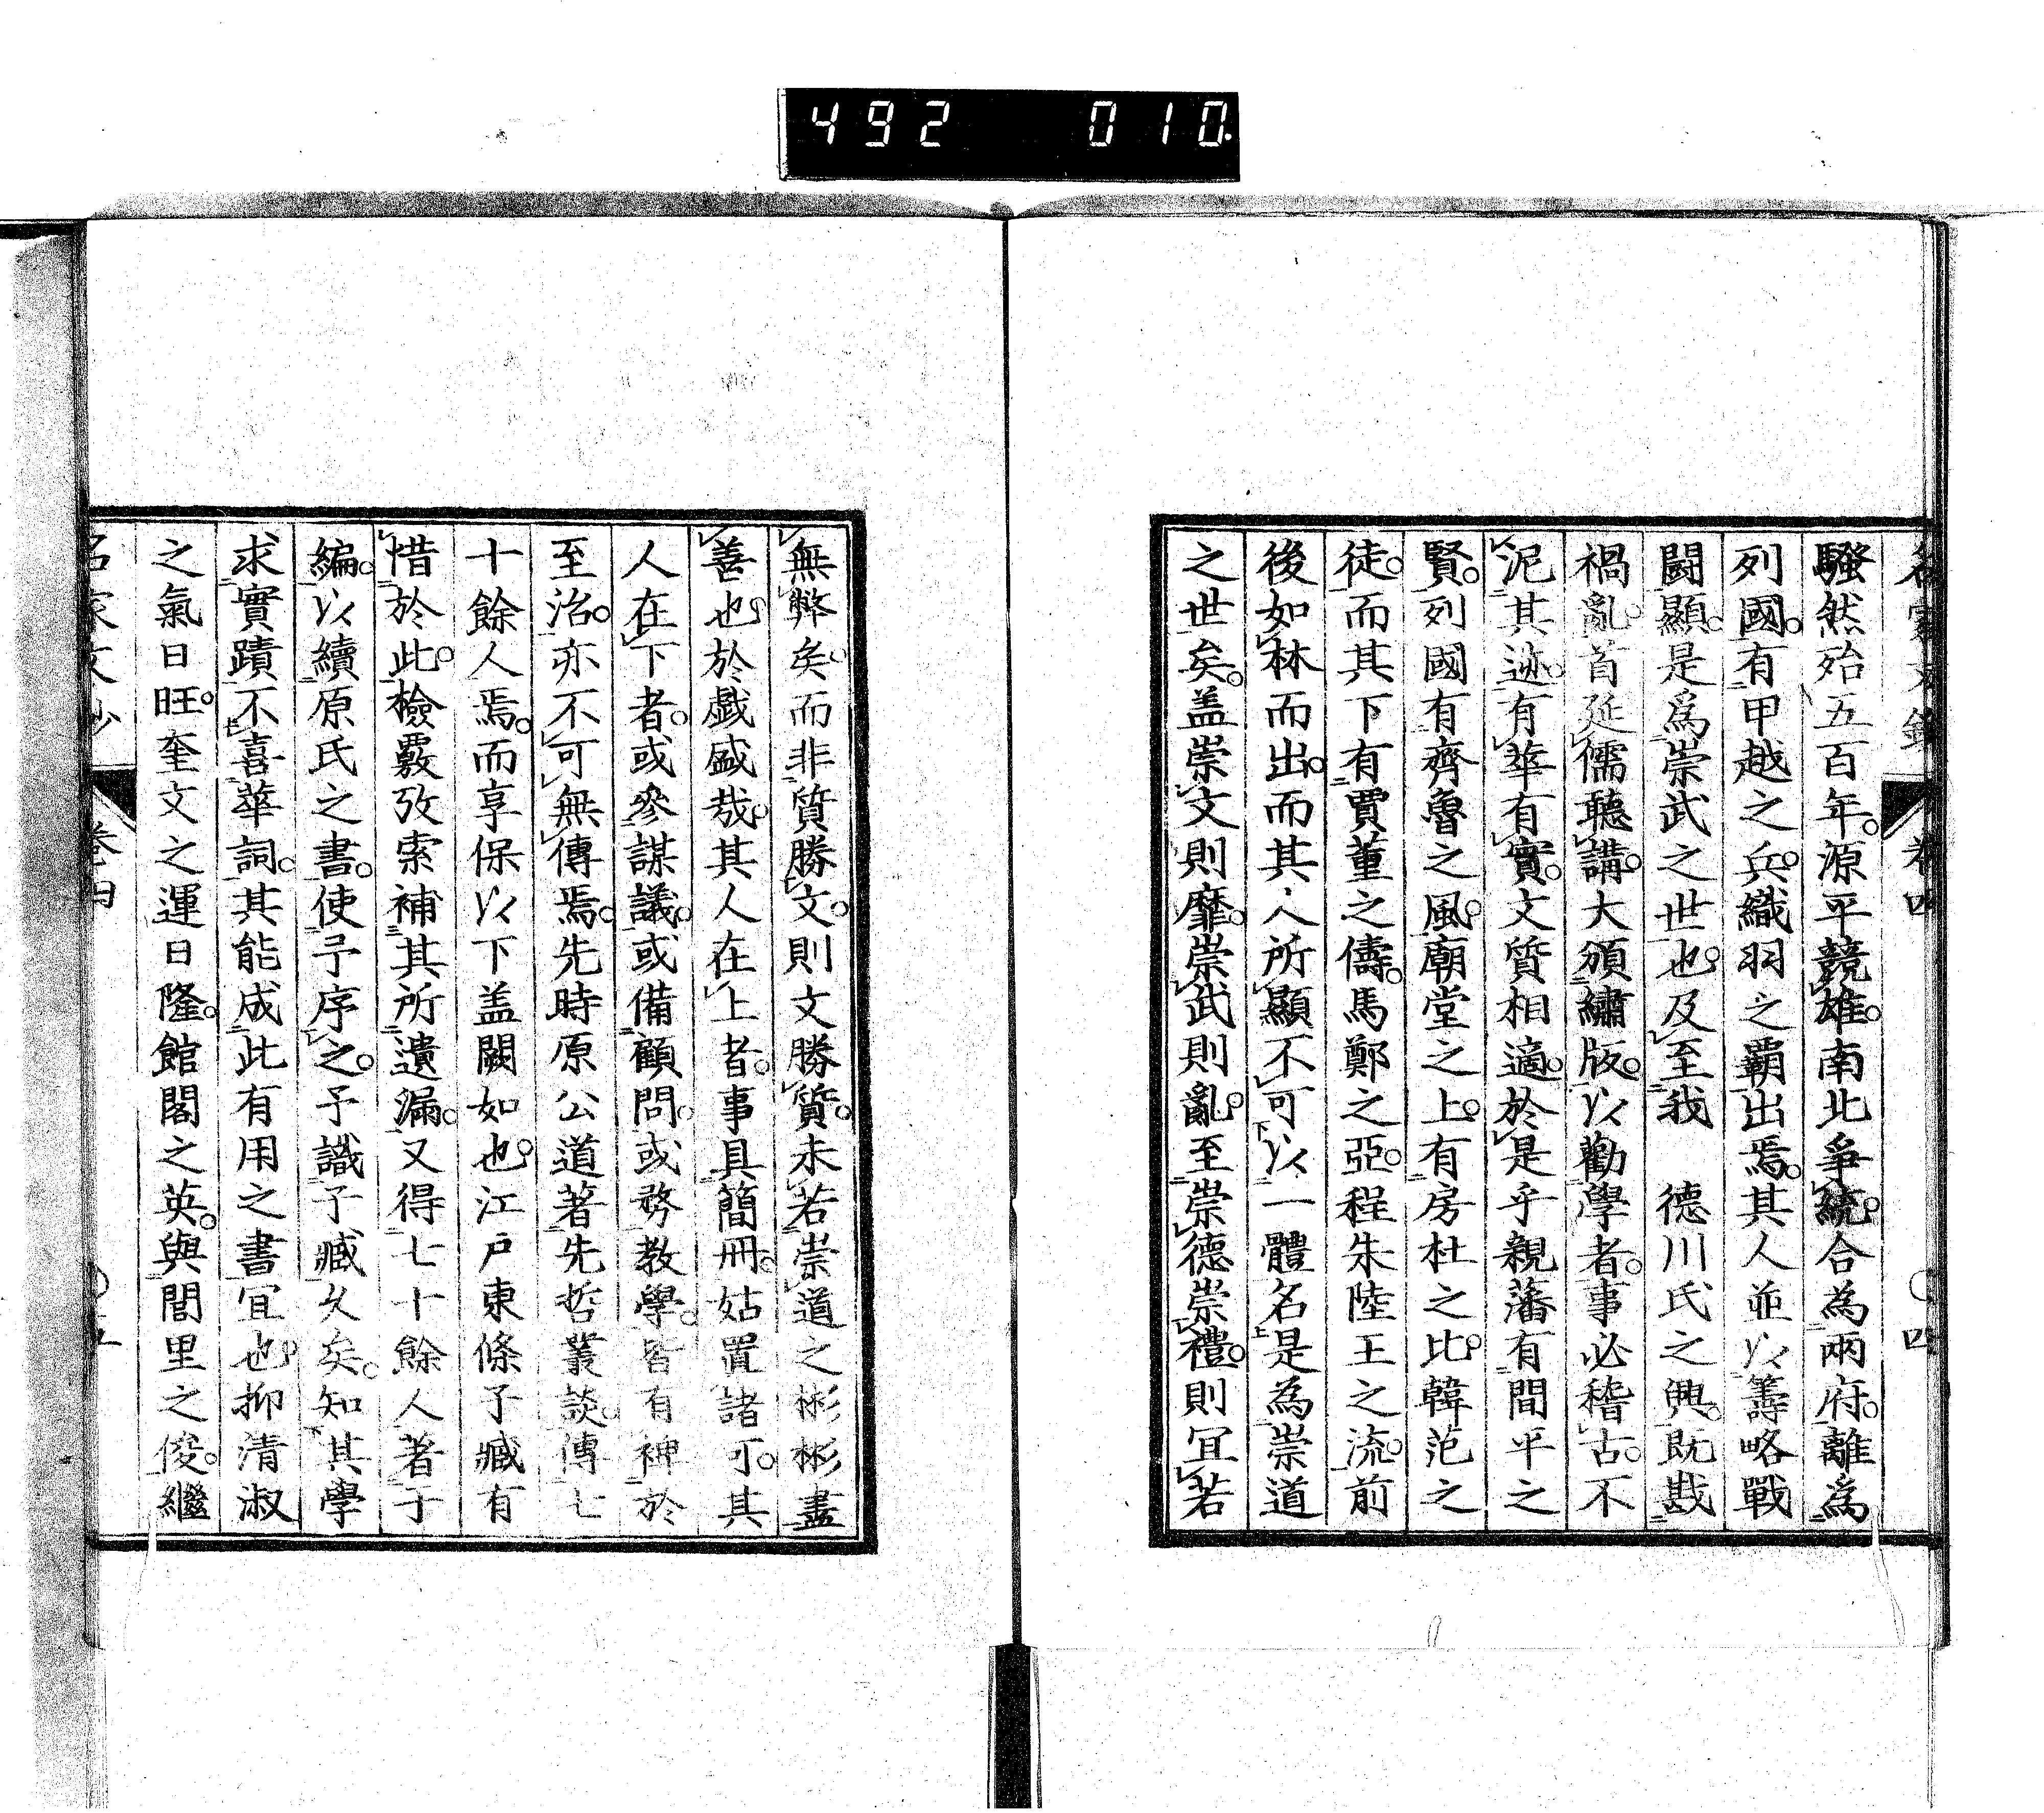 492 010
騷然殆五百年。源平競雄。南北爭統。合為兩府。離為
列國。有甲越之兵。織羽之覇出焉。其人並以籌略戰
鬪顯。是爲崇武之世也。及至我　德川氏之興。既戡
禍亂。首延儒聽講。大頒繡版。以勸學者。事必稽古。不
泥其迹。有華有實。文質相適。於是乎親藩有間平之
賢。列國有齊魯之風。廟堂之上。有房杜之比。韓范之
徒。而其下有賈董之儔。馬鄭之亞。程朱陸王之流。前
後如林而出。而其人所顯不可以一體名。是為崇道
之世矣。盖崇文則靡。崇武則亂。至崇德崇禮。則宜若
無弊矣。而非質勝文。則文勝質。未若崇道之彬彬盡
善也。於戲盛哉。其人在上者。事具簡冊。姑置諸可。其
人在下者。或參謀議。或備顧問。或務教學。皆有裨於
至治。亦不可無傳焉。先時原公道著先哲叢談。傳七
十餘人焉。而享保以下盖闕如也。江戸東條子臧有
惜於此。檢覈攷索補其所遺漏。又得七十餘人著于
編。以續原氏之書。使予序之。予識子臧久矣。知其學
求實蹟不喜華詞。其能成此有用之書宜也。抑清淑
之氣日旺。奎文之運日隆。館閣之英。與閭里之俊。繼
名家文抄　卷四　〇五